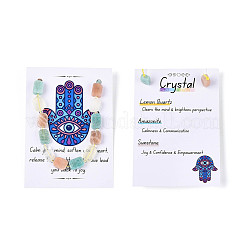 Calm
mind soften
ment,
release
you
back to joy
Crystal
Lemon Quartz
Clears the mind & brightens perspective
Amazonite
Calmness & Communication
Sunstone
Joy & Confidence & Empowerment